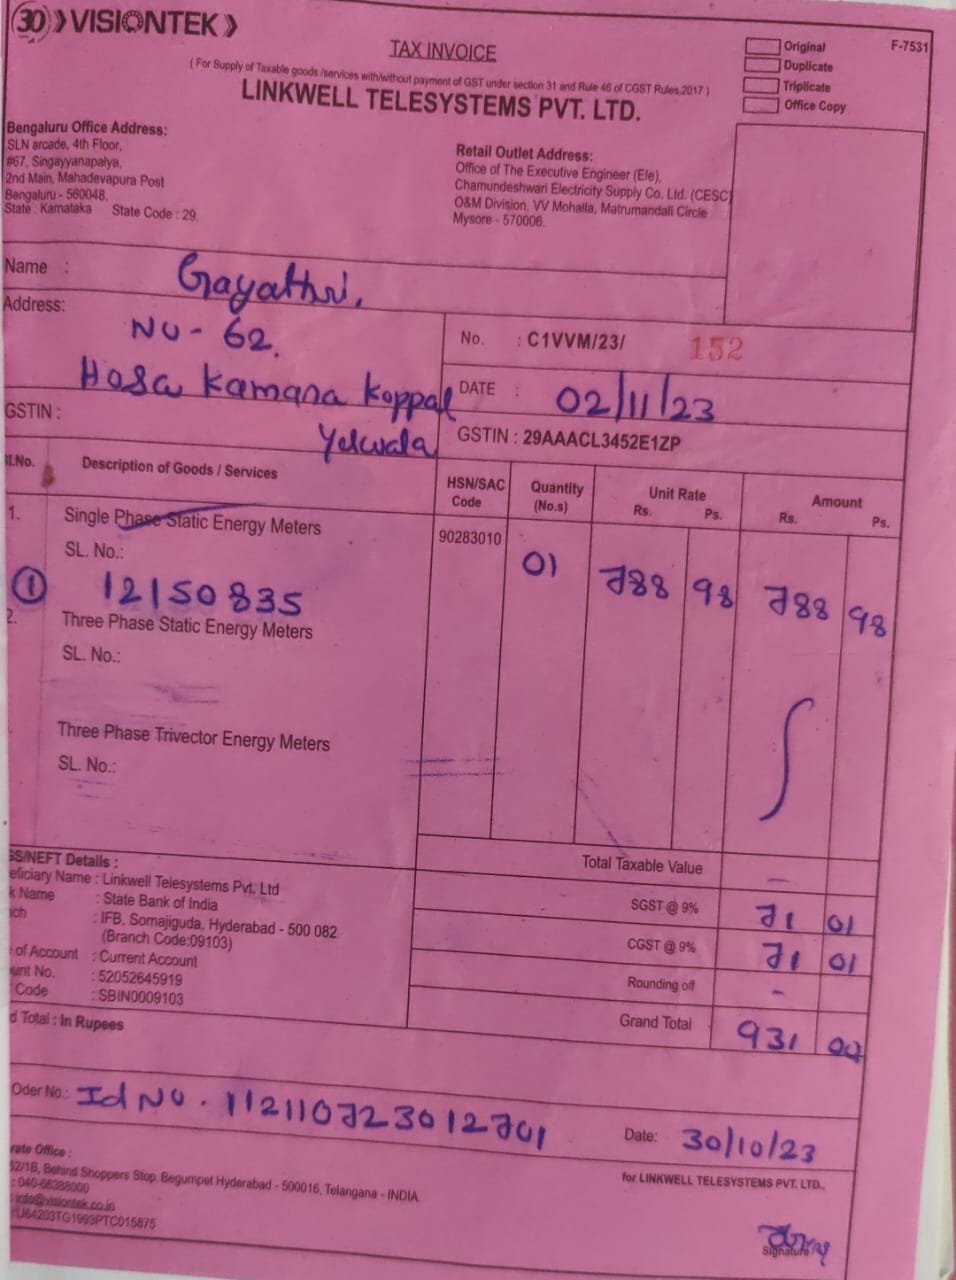 30 VISIONTEK
TAX INVOICE
( For Supply of Taxable goods /services with/without payment of GST under section 31 and Rule 46 of CGST Rules,2017 )
LINKWELL TELESYSTEMS PVT. LTD.
Original
Duplicate
Triplicate
Office Copy
F-7531
Bengaluru Office Address:
SLN arcade, 4th Floor,
#67, Singayyanapalya,
2nd Main, Mahadevapura Post
Bengaluru - 560048.
State : Karnataka State Code : 29.
Retail Outlet Address:
Office of The Executive Engineer (Ele),
Chamundeshwari Electricity Supply Co. Ltd. (CESC)
O&M Division, VV Mohalla, Matrumandali Circle
Mysore - 570006.
Name : Gayathri.
Address: NO - 62.
Hosa Kamana Koppal
Yelwala
GSTIN :
No. : C1VVM/23/ 152
DATE : 02/11/23
GSTIN : 29AAACL3452E1ZP
Sl.No. Description of Goods / Services HSN/SAC Code Quantity (No.s) Unit Rate Rs. Ps. Amount Rs. Ps.
1. Single Phase Static Energy Meters 90283010 01 788 98 788 98
SL. No.:
① 12150835
2. Three Phase Static Energy Meters
SL. No.:
Three Phase Trivector Energy Meters
SL. No.:
GS/NEFT Details :
eficiary Name : Linkwell Telesystems Pvt. Ltd
k Name : State Bank of India
nch : IFB, Somajiguda, Hyderabad - 500 082
(Branch Code:09103)
of Account : Current Account
unt No. : 52052645919
Code : SBIN0009103
Total Taxable Value -
SGST @ 9% 71 01
CGST @ 9% 71 01
Rounding off -
Grand Total 931 00
d Total : In Rupees
Oder No.: Id No. 112110723012701 Date: 30/10/23
rate Office :
52/1B, Behind Shoppers Stop, Begumpet Hyderabad - 500016, Telangana - INDIA
: 040-66388000
: info@visiontek.co.in
: U64203TG1993PTC015875
for LINKWELL TELESYSTEMS PVT. LTD.,
Signature